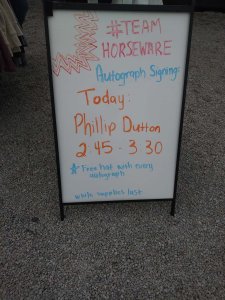 #TEAM
HORSEWARE
Autograph Signing:
Today:
Phillip Dutton
2:45 - 3:30
*Free hat with every
autograph
while supplies last